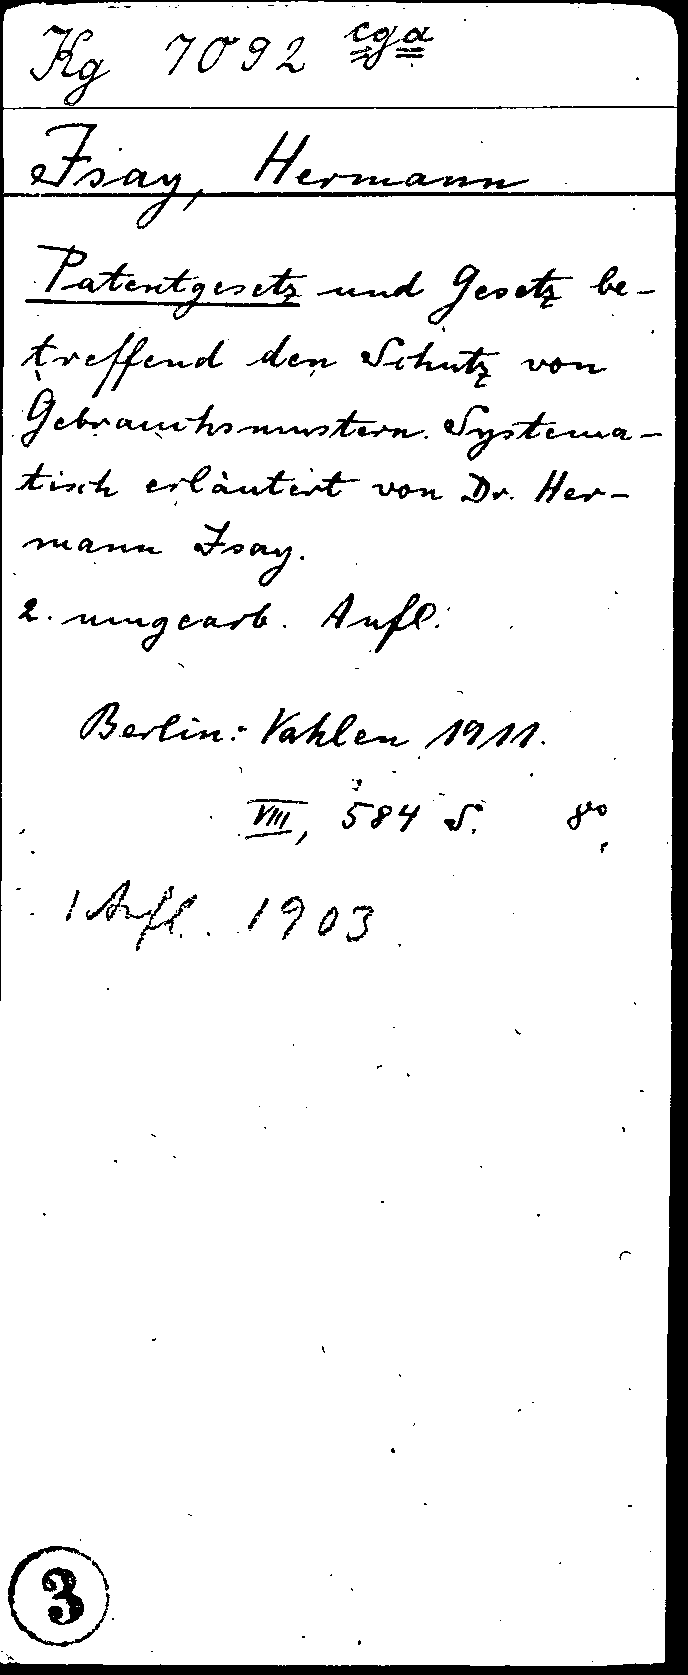 Kg 7092 cga
Isay, Hermann
Patentgesetz und Gesetz be-
treffend den Schutz von
Gebrauchsmustern. Systema-
tisch erläutert von Dr. Her-
mann Isay.
2. umgearb. Aufl.
Berlin: Vahlen 1911.
VIII, 584 S. 8°
1 Aufl. 1903
3